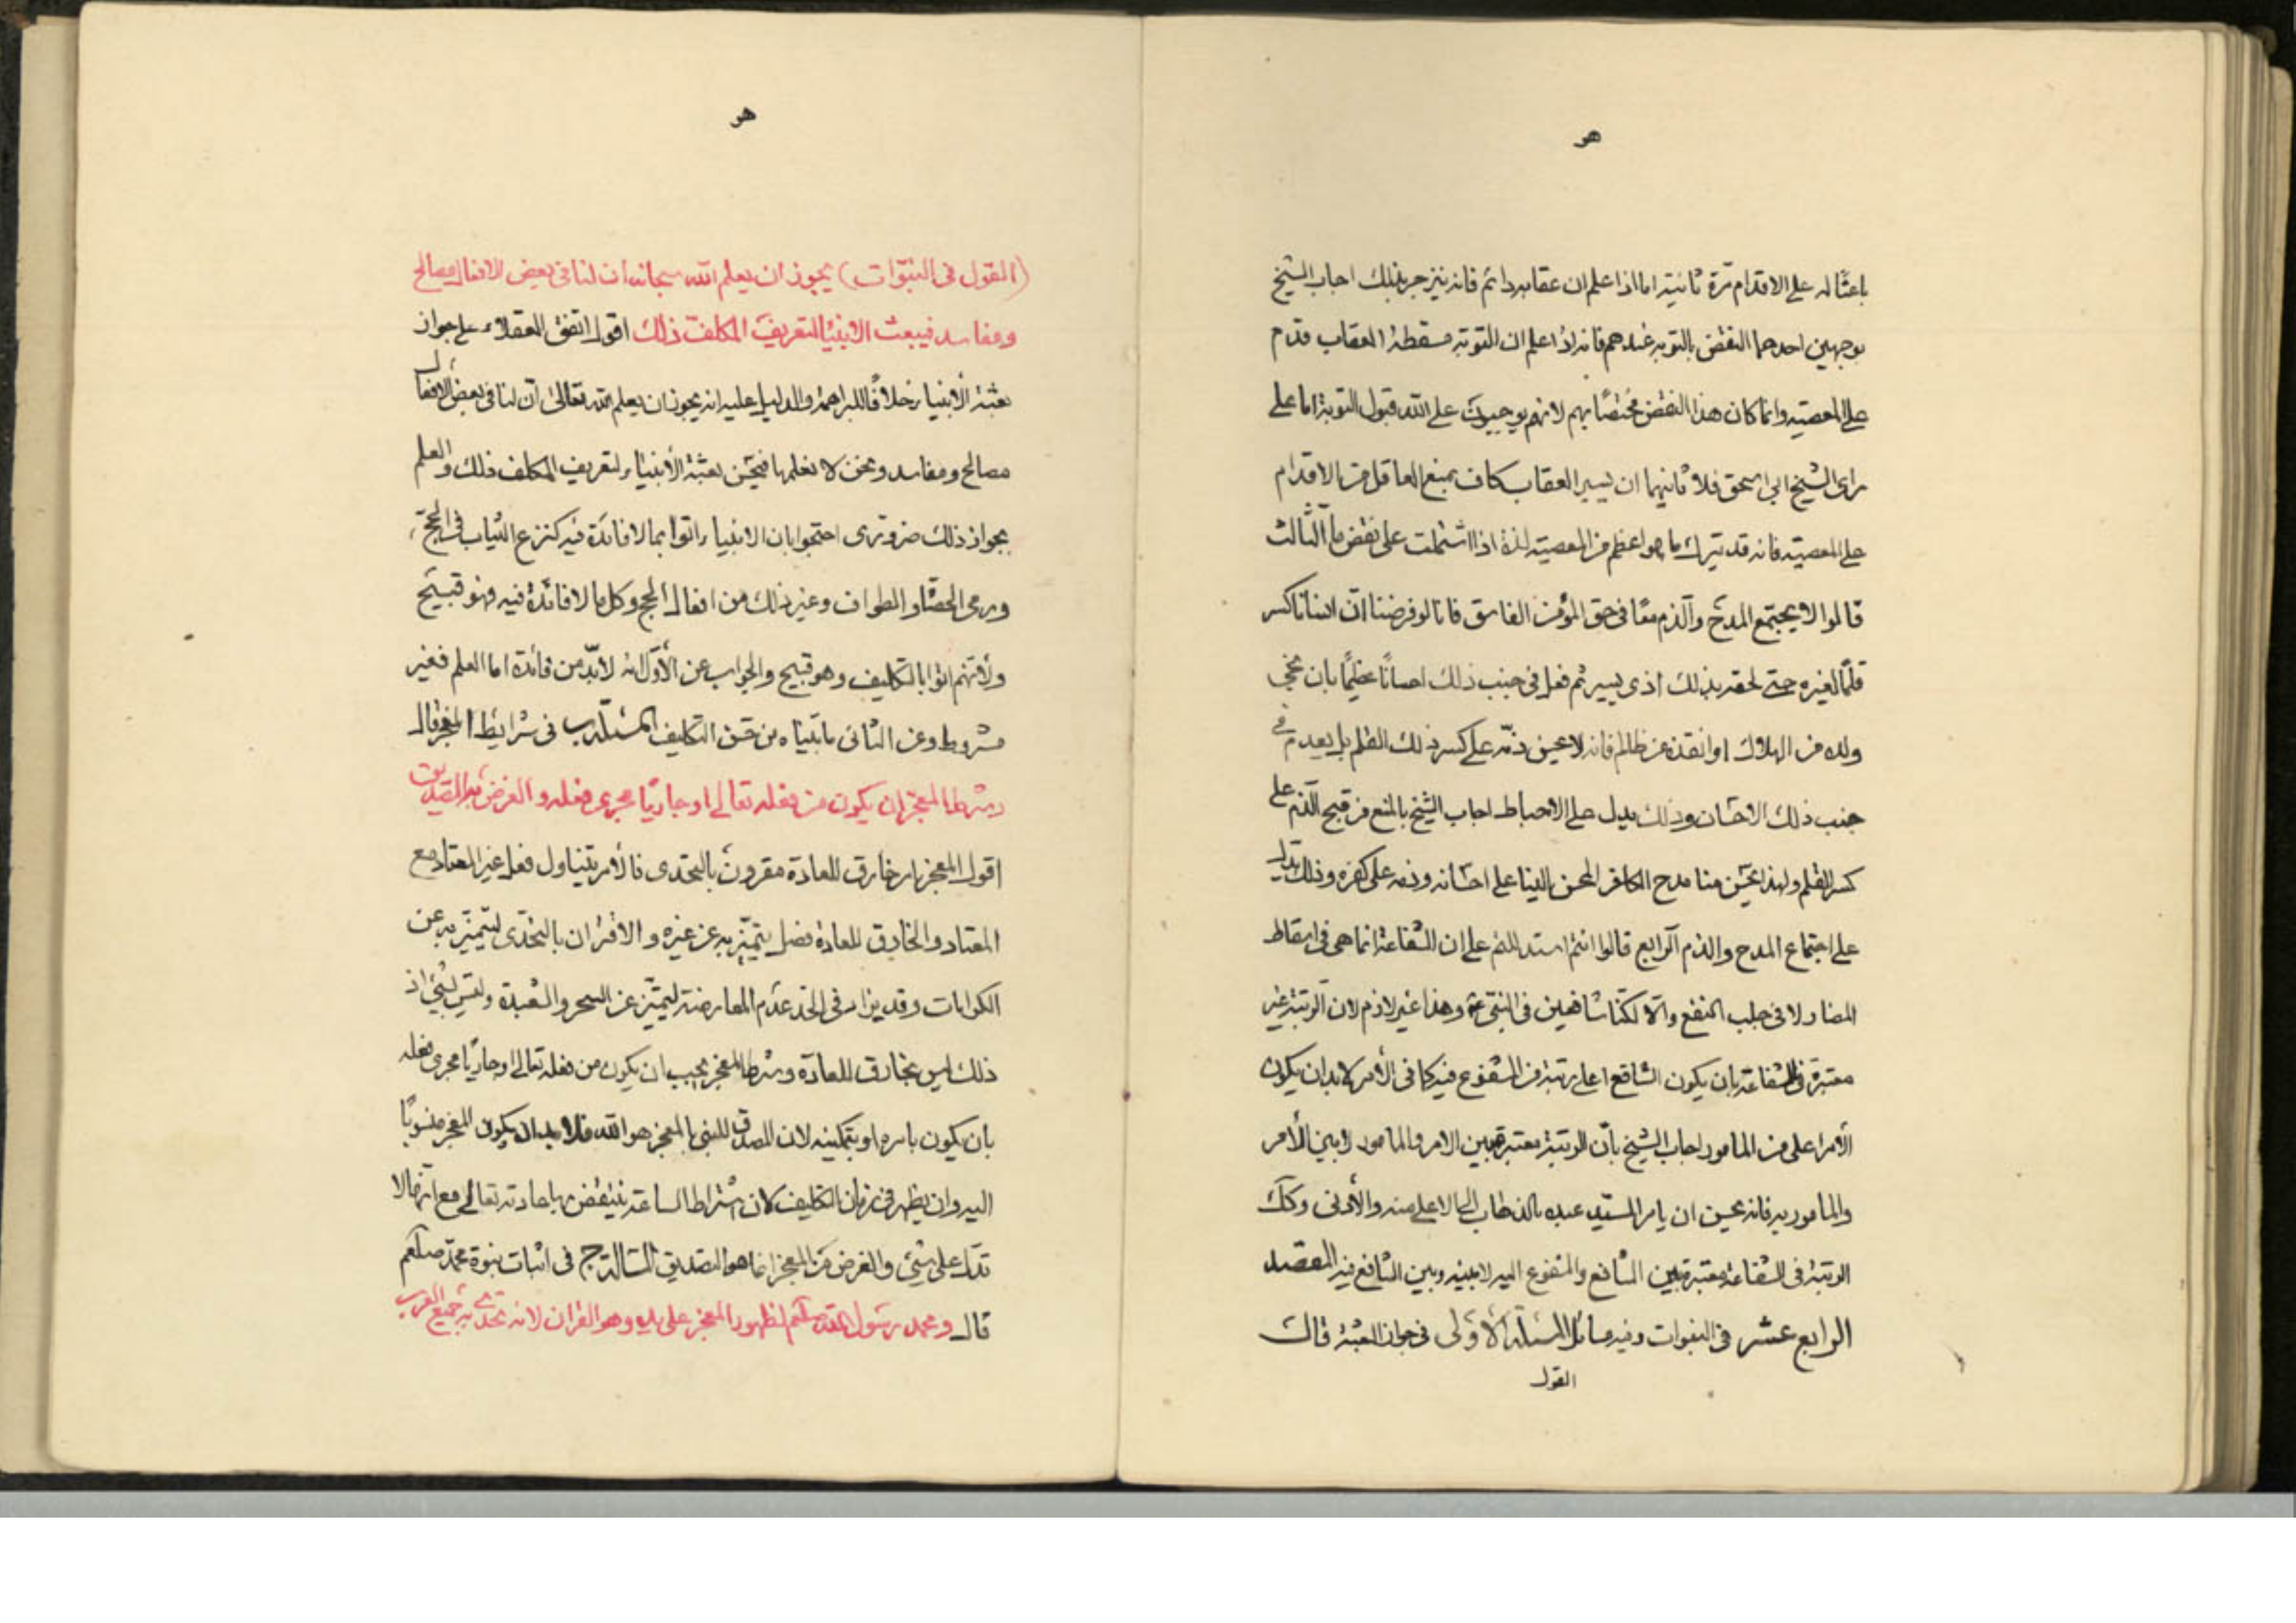 هو
باعثًا له على الاقدام مرّة ثانية اما اذا علم ان عقابه دائم فانه ينزجر بذلك اجاب الشيخ
بوجهين احدهما النقض بالتوبة عندهم فانه اذا علم ان التوبة مسقطة العقاب قدم
على المعصية وانما كان هذا النقض مختصًا بهم لانهم يوجبون على الله قبول التوبة اما على
راى الشيخ ابى اسحق فلا ثانيهما ان يسير العقاب كاف بمنع العاقل من الاقدام
على المعصية فانه قد يترك ما هو اعظم من المعصية لذة اذا اشتملت على نقض ما الثالث
قالوا لا يجتمع المدح والذم معًا فى حق المؤمن الفاسق فانا لو فرضنا انّ انسانا كسر
قلمًا لغيره حتى لحقه بذلك اذى يسير ثم فعل فى جنب ذلك احسانًا عظيمًا بان نجى
ولده من الهلاك او انقذه من ظالم فانه لا يحسن ذمّه على كسر ذلك القلم بل يعدم فى
جنب ذلك الاحسان وذلك يدل على الاحباط اجاب الشيخ بالمنع من قبح الذم على
كسر القلم ولهذا يحسن منا مدح الكافر المحسن الينا على احسانه وذمه على كفره وذلك يدل
على اجتماع المدح والذم الرابع قالوا انتم استدللتم على ان الشفاعة انما هى فى اسقاط
المضار لا فى جلب النفع والّا لكنّا شافعين فى النبى ع وهذا غير لازم لان الرتبة غير
معتبرة فى الشفاعة بان يكون الشافع اعلى رتبة من المشفوع فيه كما فى الأمر لابد ان يكون
الأمر اعلى من المامور اجاب الشيخ بأنّ الرتبة معتبرة بين الامر والمامور لا بين الأمر
والمامور به فانه يحسن ان يامر السيّد عبده بالخطاب الى الاعلى منه والأدنى وكك
الرتبة فى الشفاعة معتبرة بين الشافع والمشفوع اليه لا بينه وبين الشافع فيه المقصد
الرابع عشر فى النبوات وفيه مسائل المسئلة الأولى فى جواز البعثة قال
القول
هو
(القول فى النبوّات) يجوز ان يعلم الله سبحانه ان لنا فى بعض الافعال مصالح
ومفاسد فيبعث الانبياء لتعريف المكلف ذلك اقول اتفق العقلاء على جواز
بعثة الأنبياء خلافًا للبراهمة والدليل عليه انه يجوز ان يعلم الله تعالى انّ لنا فى بعض الافعال
مصالح ومفاسد ونحن لا نعلمها فيحسن بعثة الأنبياء لتعريف المكلف ذلك والعلم
بجواز ذلك ضرورى احتجوا بان الانبياء اتوا بما لا فائدة فيه كنزع الثياب فى الحجّ
ورمى الحصا والطواف وغير ذلك من افعال الحج وكل ما لا فائدة فيه فهو قبيح
ولأنهم اتوا بالتكليف وهو قبيح والجواب عن الأوّل انه لابدّ من فائدة اما العلم فغير
مشروط وعن الثانى ما بيناه من حسن التكليف المسئلة ب فى شرايط المعجز قال
وشرط المعجز ان يكون من فعله تعالى او جاريًا مجرى فعله والغرض به التصديق
اقول المعجز امر خارق للعادة مقرون بالتحدى فالأمر يتناول فعل غير المعتاد مع
المعتاد والخارق للعادة فصل يتميّز به عن غيره والاقتران بالتحدّى ليتميّز به عن
الكرامات وقد يزاد فى الحد عدم المعارضة ليتميّز عن السحر والشعبذة وليس بشئ اذ
ذلك ليس بخارق للعادة وشرط المعجز يجب ان يكون من فعله تعالى او جاريًا مجرى فعله
بان يكون بامره او بتمكينه لان المصدق للنبى بالمعجز هو الله فلابد ان يكون المعجز منسوبًا
اليه وان يظهر فى زمان التكليف لان اشتراط الساعة ينتقض بها عادته تعالى مع انها لا
تدل على شئ والغرض من المعجز انما هو التصديق المسئلة ج فى اثبات نبوة محمد صلعم
قال ومحمد رسول الله صلعم لظهور المعجز على يده وهو القران لانه تحدى به جميع العرب